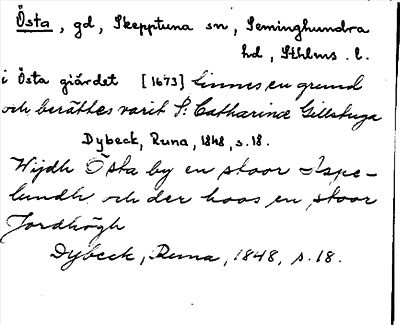 Östa, gd, Skepptuna sn, Seminghundra
hd, Sthlms. l.
i Östa giärdet [1673] finnes en grund
och berättes varit S: Catharinæ Gillstuga
Dybeck, Runa, 1848, s. 18.
Wijdh Östa by en stoor Aspe-
lundh och der hoos en stoor
Jordhögh
Dybeck, Runa, 1848, s. 18.